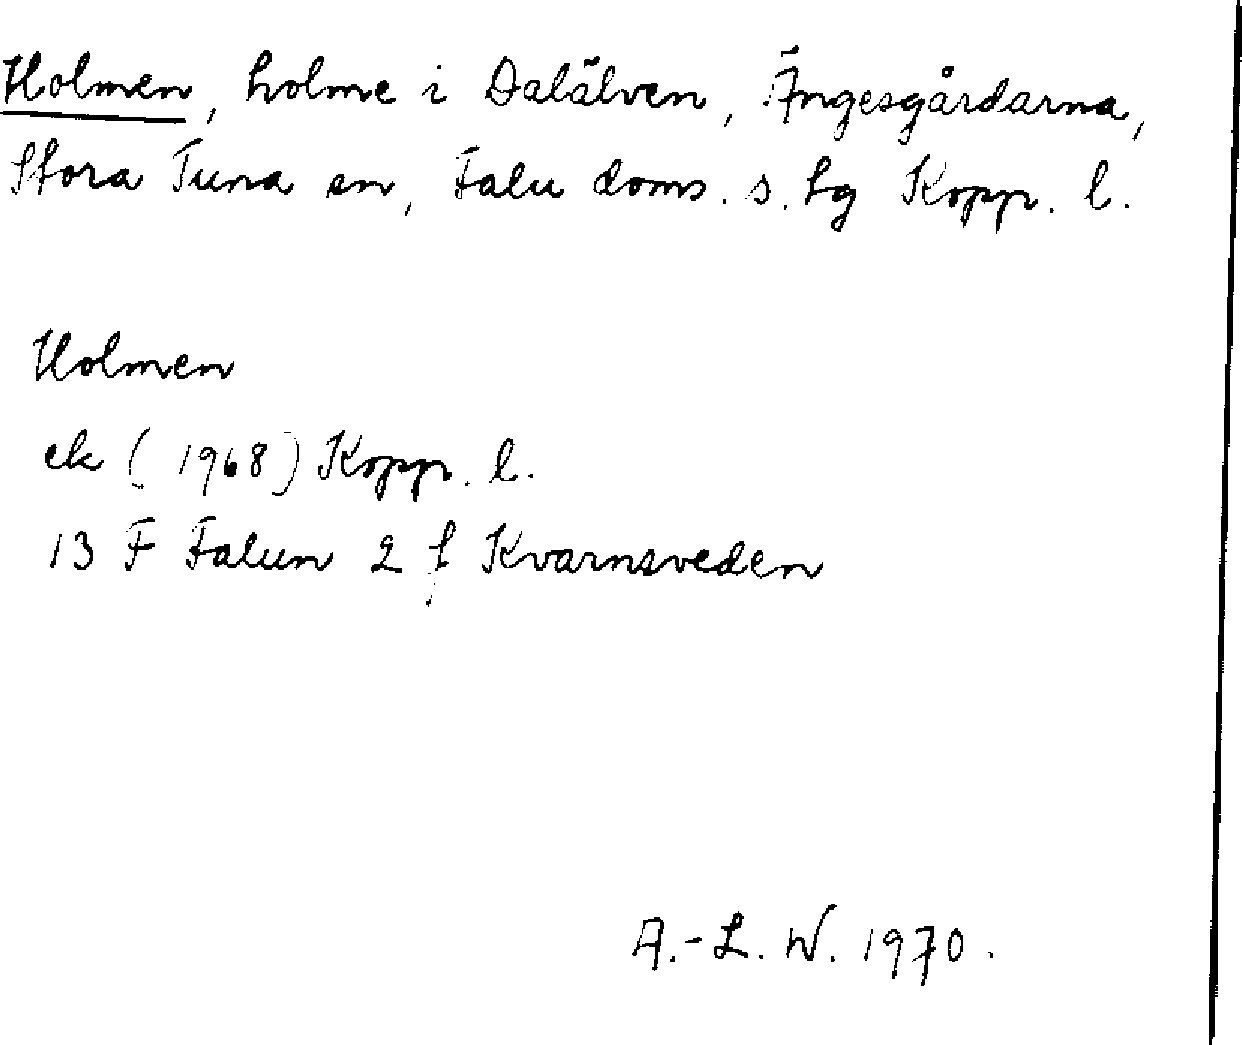 Holmen, holme i Dalälven, Ängesgårdarna,
Stora Tuna sn, Falu doms. s. hg Kopp. l.
Holmen
ek (1968) Kopp. l.
13 F Falun 2 f Kvarnsveden
A.-L. W. 1970.